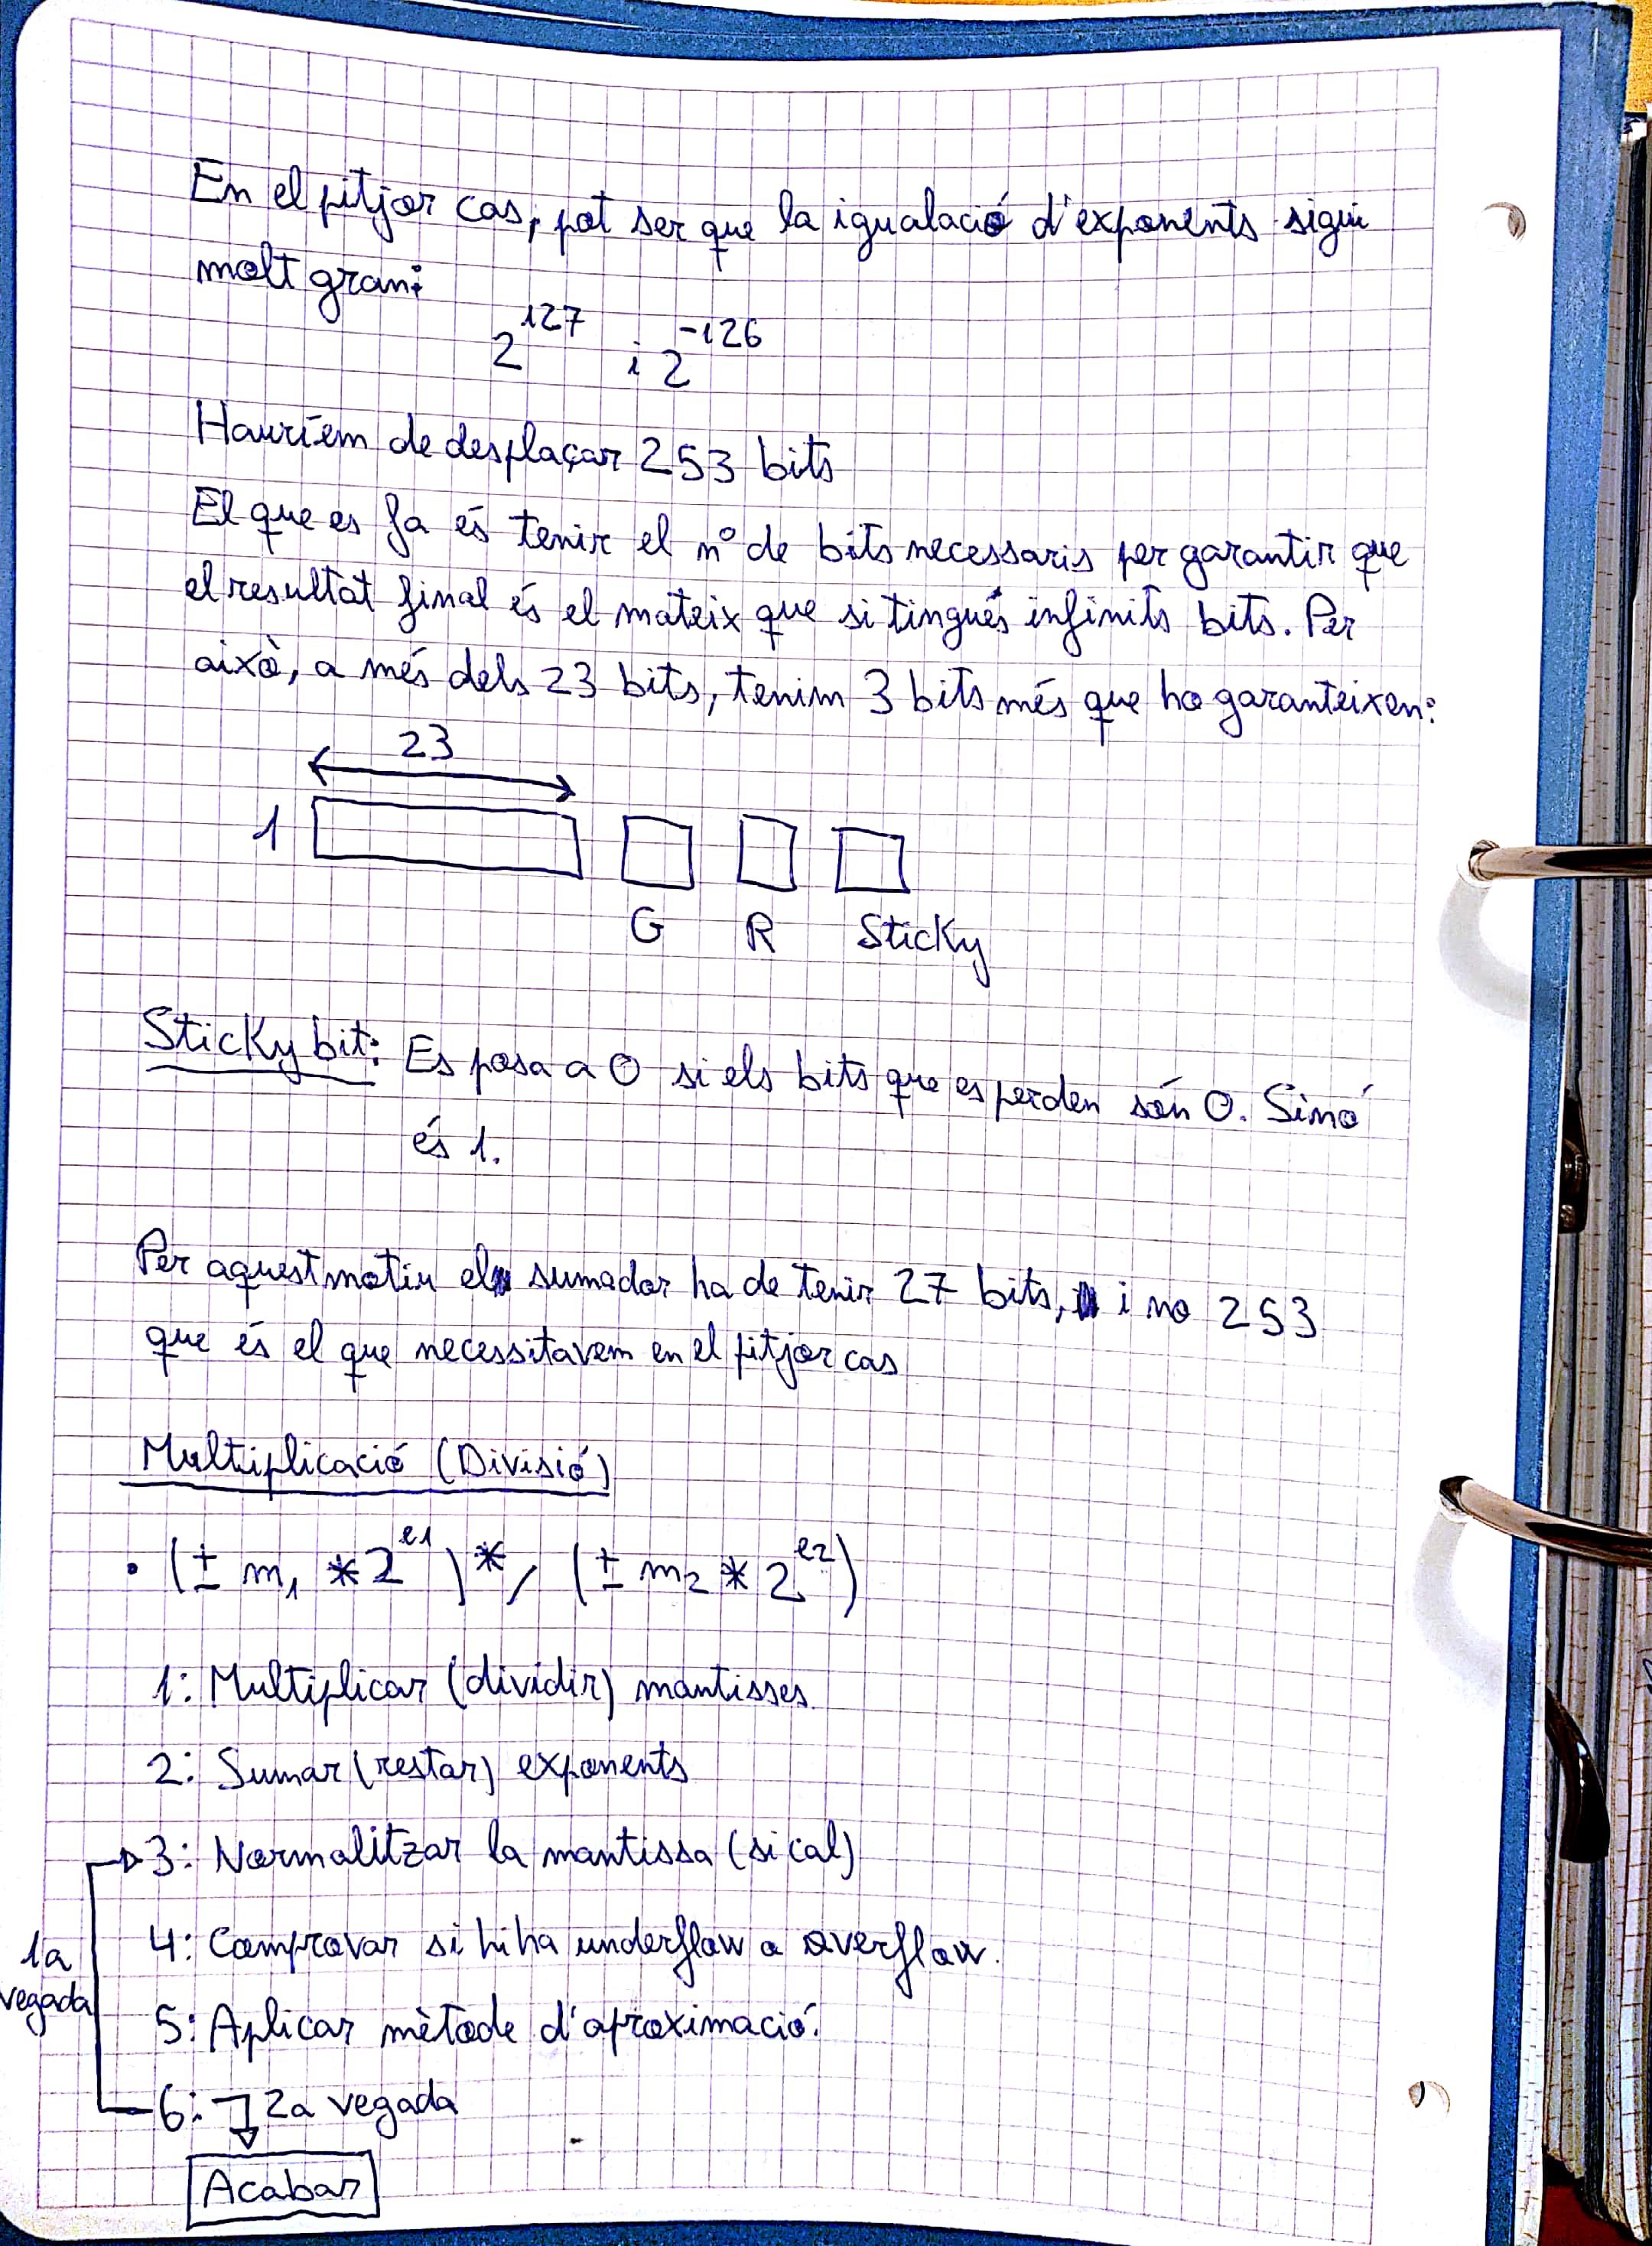 En el pitjor cas, pot ser que la igualació d'exponents sigui
molt gran:
2^127 i 2^-126
Hauríem de desplaçar 253 bits
El que es fa és tenir el nº de bits necessaris per garantir que
el resultat final és el mateix que si tingués infinits bits. Per
això, a més dels 23 bits, tenim 3 bits més que ho garanteixen:
23
1
G R Sticky
Sticky bit: Es posa a 0 si els bits que es perden són 0. Sinó
és 1.
Per aquest motiu el sumador ha de tenir 27 bits, i no 253
que és el que necessitavem en el pitjor cas
Multiplicació (Divisió)
• (± m1 * 2^e1) * / (± m2 * 2^e2)
1: Multiplicar (dividir) mantisses.
2: Sumar (restar) exponents
3: Normalitzar la mantissa (si cal)
4: Comprovar si hi ha underflow o overflow.
1a
vegada
5: Aplicar mètode d'aproximació.
6: 2a vegada
Acabar